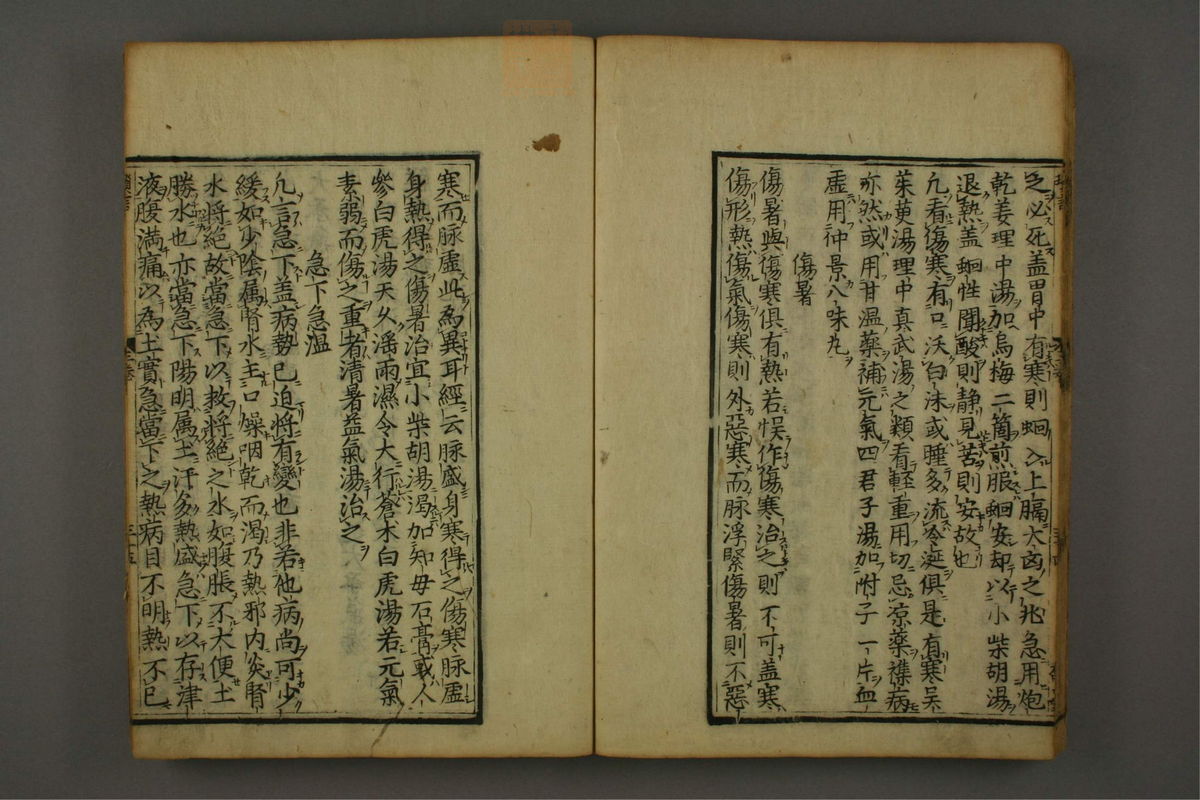 乏必死盖胃中有寒則蛔入上膈大凶之兆急用炮
乾姜理中湯加烏梅二箇煎服蛔安却以小柴胡湯
退熱盖蛔性聞酸則靜見苦則安故也
凢看傷寒有口沃白沫或唾多流冷涎俱是有寒吴
茱萸湯理中真武湯之類看輕重用切忌凉藥襍病
亦然或用甘温藥補元氣四君子湯加附子一片血
虚用仲景八味丸
傷暑
傷暑與傷寒俱有熱若悮作傷寒治之則不可盖寒
傷形熱傷氣傷寒則外惡寒而脉浮緊傷暑則不惡
寒而脉虚此為異耳經云脉盛身寒得之傷寒脉虚
身熱得之傷暑治宜小柴胡湯渴加知母石膏或人
參白虎湯天久淫雨濕令大行蒼术白虎湯若元氣
素弱而傷之重者清暑益氣湯治之
急下急温
凢言急下盖病勢已迫將有變也非若他病尚可少
緩如少陰属腎水主口燥咽乾而渴乃熱邪内炎腎
水將絶故當急下以救將絶之水如腹脹不大便土
勝水也亦當急下陽明属土汗多熱盛急下以存津
液腹滿痛以為土實急當下之熱病目不明熱不已